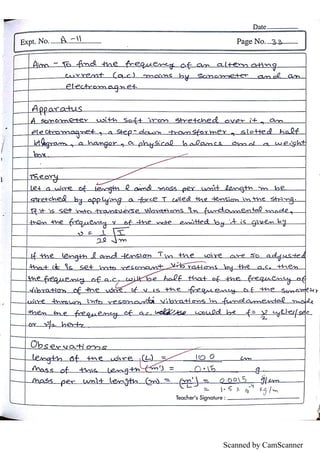 Date
Expt. No. A-11
Page No. 33
Aim - To find the frequency of an alternating
current (a.c) means by sonometer and an
electromagnet.
Apparatus
A sonometer with soft iron stretched over it, an
electromagnet, a step-down transformer, slotted half
kilogram, a hangor, a physical balance and a weight
box.
Theory
Let a wire of length l and mass per unit length m be
stretched by applying a force T called the tension in the string.
If it is set into transverse vibrations in fundamental mode,
then the frequency v of the note emitted by it is given by
v = 1/2l √T/m
If the length l and tension T in the wire are so adjusted
that it is set into resonant vibrations by the a.c. then
the frequency of a.c. will be half that of the frequency of
vibration of the wire. If v is the frequency of the sonometer
wire thrown into resonant vibrations in fundamental mode
then the frequency of a.c. would be f = v/2 cycles/sec
or v/2 hertz.
Observations
Length of the wire (L) = 100 cm
Mass of this length (m') = 0.15 g
mass per unit length (m) = (m'/L) = 0.0015 g/cm
= 1.5 x 10⁻⁴ kg/m
Teacher's Signature :
Scanned by CamScanner